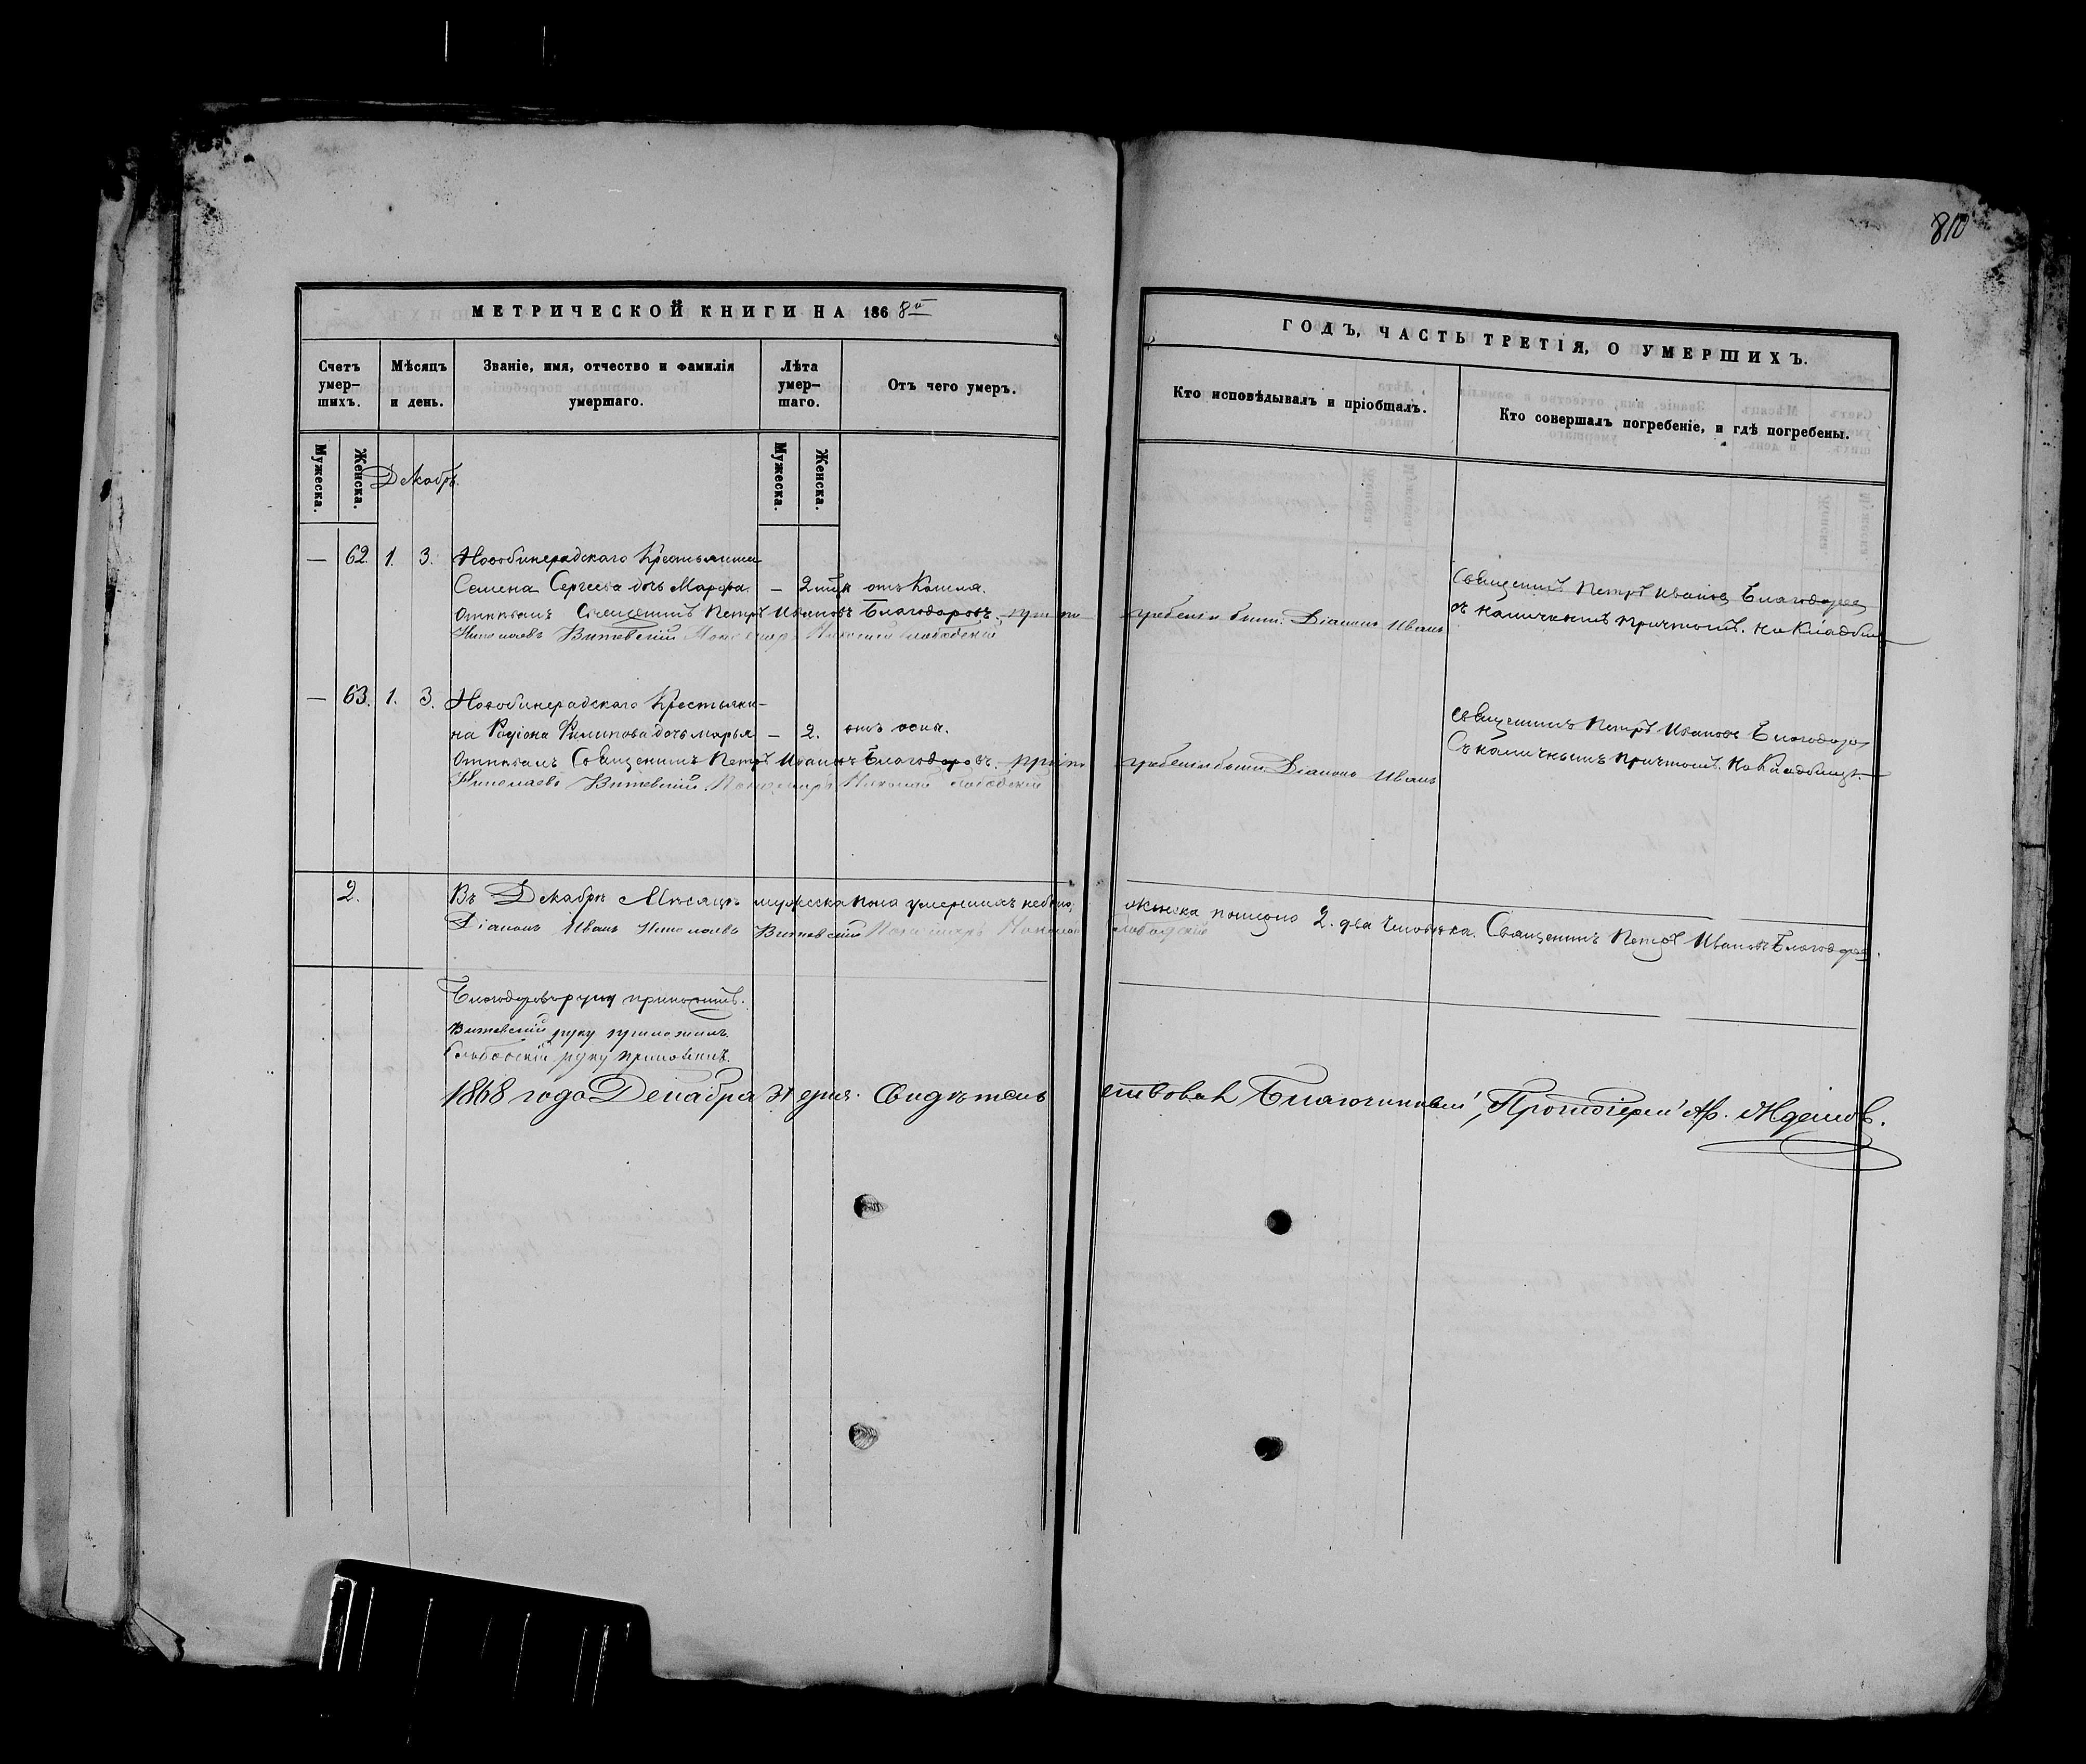 810
МЕТРИЧЕСКОЙ КНИГИ НА 1868й
ГОДЪ, ЧАСТЬ ТРЕТІЯ, О УМЕРШИХЪ.
Счетъ умер-шихъ.
Мѣсяцъ и день.
Званіе, имя, отчество и фамилія умершаго.
Лѣта умер-шаго.
Отъ чего умеръ.
Кто исповѣдывалъ и пріобщалъ.
Кто совершалъ погребеніе, и гдѣ погребены.
Мужеска.
Женска.
Декабрь.
Мужеска.
Женска.
— 62. 1. 3. Новобинерадскаго Крестьянина
Семена Сергеева дочь Марфа. — 2 отъ Кашля.
Священникъ Петръ Ивановъ Благодаровъ
съ наличнымъ причтомъ. На Кладбищѣ
Отпѣвалъ Священникъ Петръ Ивановъ Благодаровъ. при по
гребеніи были. Діаконъ Иванъ
Николаевъ Витевскій Пономарь Николай Слободскій
— 63. 1. 3. Новобинерадскаго Крестьяни-
на Родіона Филипова дочь марья — 2. отъ оспы.
священникъ Петръ Ивановъ Благодаровъ
Съ наличнымъ причтомъ. На Кладбищѣ.
Отпѣвалъ Священникъ Петръ Ивановъ Благодаровъ. при по
гребеніи были Діаконъ Иванъ
Николаевъ Витевскій. Пономарь Николай Слободскій
2. Въ Декабрѣ Мѣсяцѣ мужеска пола умершихъ небыло,
женска полу 2. два человѣка. Священникъ Петръ Ивановъ Благодаровъ.
Діаконъ Иванъ Николаевъ Витевскій Пономарь Николай Слободскій
Благодаровъ руку приложилъ.
Витевскій руку приложилъ.
Слободскій руку приложилъ.
1868 года Декабря 31 дня. Свидѣтель
ствовалъ Благочинный, Протоіерей